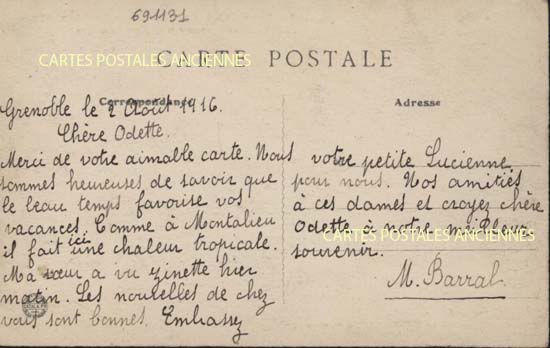 691131
CARTE POSTALE
CARTES POSTALES ANCIENNES
Correspondance
Adresse
Grenoble le 2 Août 1916.
Chère Odette.
Merci de votre aimable carte. Nous
sommes heureuses de savoir que
le beau temps favorise vos
vacances. Comme à Montalieu
il fait ici une chaleur tropicale.
Ma sœur a vu Zinette hier
matin. Les nouvelles de chez
vous sont bonnes. Embrassez
votre petite Lucienne
pour nous. Nos amitiés
à ces dames et croyez chère
Odette à notre meilleur
CARTES POSTALES ANCIENNES
souvenir.
M. Barral